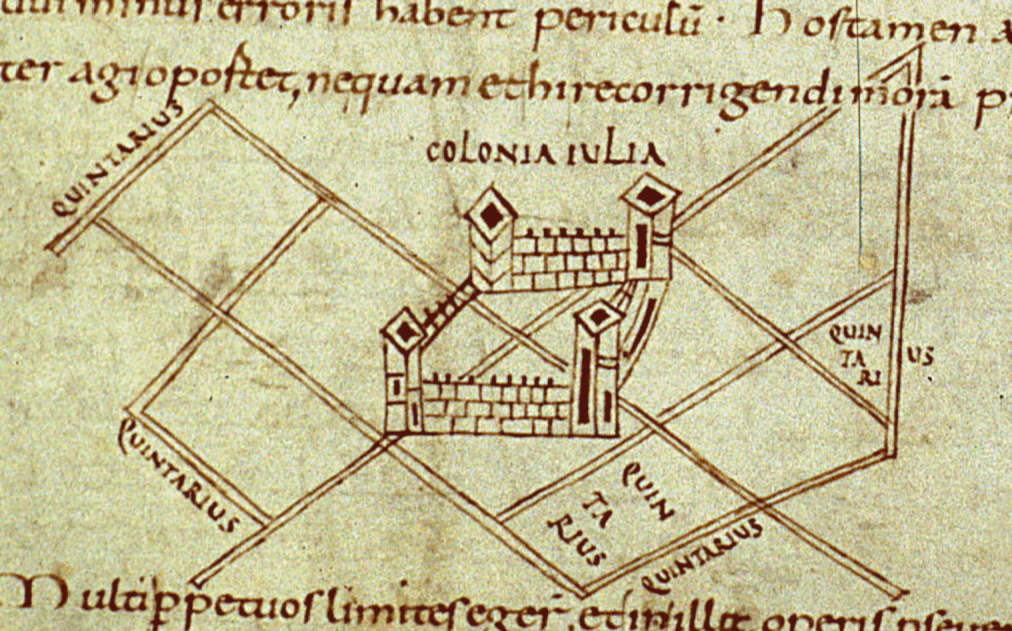 minus erroris habent periculū · hostamen
ter agiopostet, nequam ethirecorrigendi morā
COLONIA IULIA
QUINTARIUS
QUIN
TA
RI
US
QUINTARIUS
QUIN
TA
RIUS
QUINTARIUS
limites